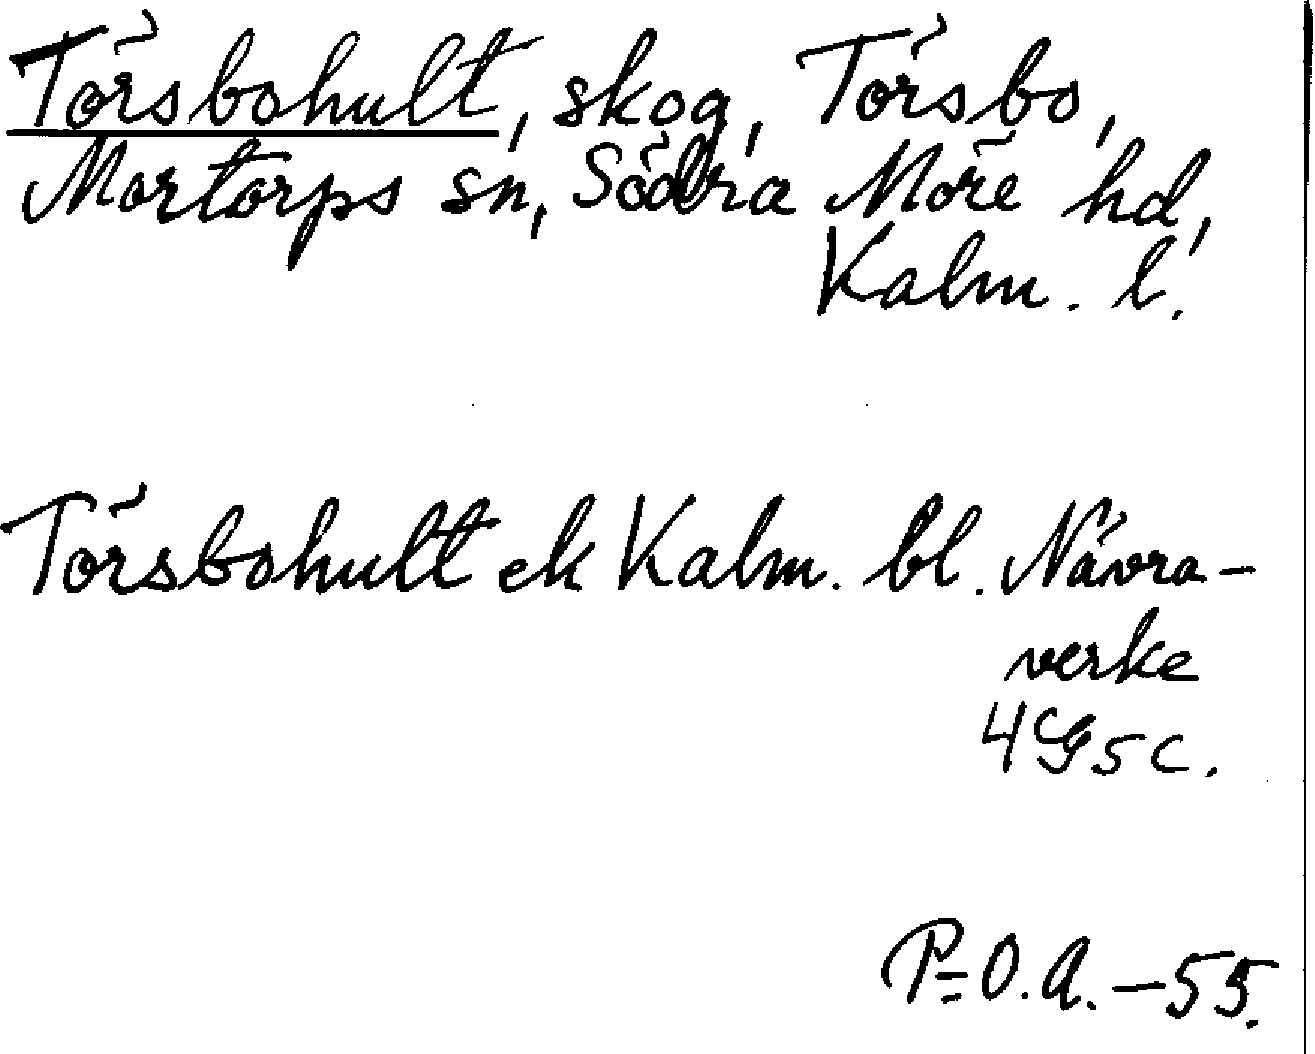 Törsbohult, skog, Törsbo,
Mortorps sn, Södra Möre hd,
Kalm. l.
Törsbohult ek Kalm. bl. Nävra-
verke
4G5c.
P-O.A.-55.